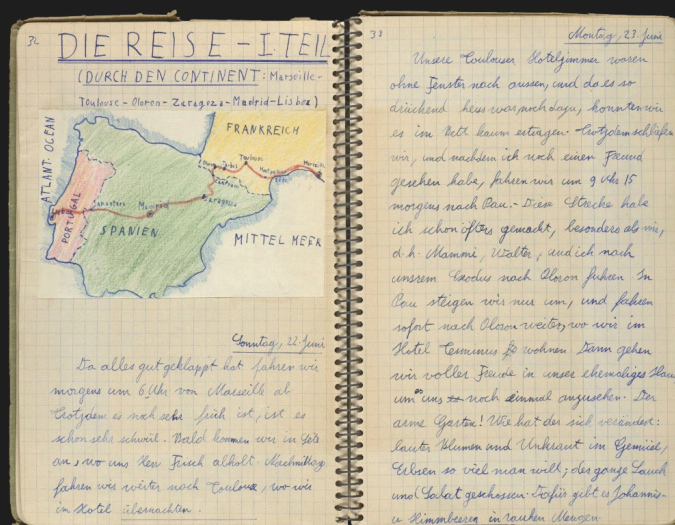 32
DIE REISE – I. TEIL
(DURCH DEN CONTINENT: Marseille-
Toulouse-Oloron-Zaragoza-Madrid-Lisboa)
ATLANT. OCEAN
FRANKREICH
Toulouse
Tarbes
Marseille
Zaragoza
Madrid
PORTUGAL
SPANIEN
MITTELMEER
Sonntag, 22. Juni
Da alles gut geklappt hat fahren wir
morgens um 6 Uhr von Marseille ab
Trotzdem es noch sehr früh ist, ist es
schon sehr schwül. Bald kommen wir in Sète
an, wo uns Herr Frisch abholt. Nachmittags
fahren wir weiter nach Toulouse, wo wir
im Hotel übernachten.
33
Montag, 23. Juni
Unsere Toulouser Hotelzimmer waren
ohne Fenster nach aussen, und da es so
drückend heiss war, noch dazu, konnten wir
es im Bett kaum ertragen. Trotzdem schliefen
wir, und nachdem ich noch einen Freund
gesehen habe, fahren wir um 9 Uhr 15
morgens nach Pau. – Diese Strecke habe
ich schon öfters gemacht, besonders als wir,
d.h. Mammi, Walter, und ich nach
unsrem Exodus nach Oloron fuhren. In
Pau steigen wir nur um, und fahren
sofort nach Oloron weiter, wo wir im
Hotel Terminus wohnen. Dann gehen
wir voller Freude in unser ehemaliges Haus
um es uns noch einmal anzusehen. Der
arme Garten! Wie hat der sich verändert:
lauter Blumen und Unkraut im Gemüse,
Erbsen so viel man will; der ganze Lauch
und Salat geschossen. Dafür gibt es Johannis-
u Himmbeeren in rauhen Mengen